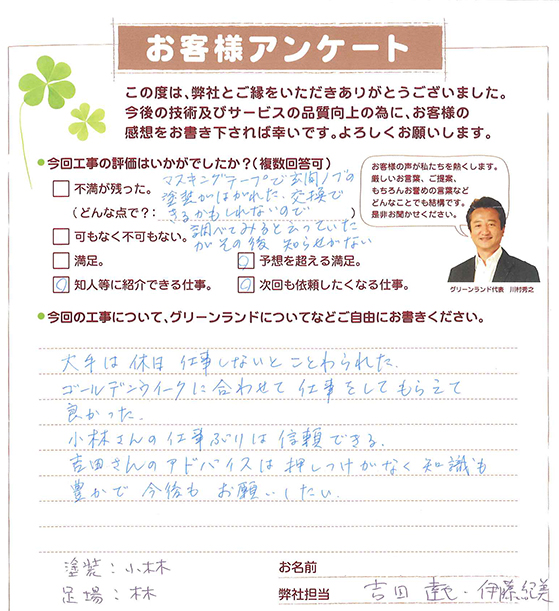 お客様アンケート
この度は、弊社とご縁をいただきありがとうございました。
今後の技術及びサービスの品質向上の為に、お客様の
感想をお書き下されば幸いです。よろしくお願いします。
●今回工事の評価はいかがでしたか？(複数回答可)
不満が残った。
(どんな点で？:
マスキングテープで玄関ノブの
塗装がはがれた。交換で
きるかもしれないので
)
調べてみると云っていた
がその後 知らせがない
可もなく不可もない。
満足。
予想を超える満足。
知人等に紹介できる仕事。
次回も依頼したくなる仕事。
お客様の声が私たちを熱くします。
厳しいお言葉、ご提案、
もちろんお誉めの言葉など
どんなことでも結構です。
是非お聞かせください。
グリーンランド代表 川村秀之
●今回の工事について、グリーンランドについてなどご自由にお書きください。
大手は 休日 仕事しないと ことわられた.
ゴールデンウイークに合わせて 仕事をしてもらえて
良かった.
小林さんの仕事ぶりは 信頼できる.
吉田さんのアドバイスは 押しつけがなく 知識も
豊かで 今後も お願いしたい.
塗装：小林
足場：林
お名前
弊社担当
吉田 達也・伊藤紀美